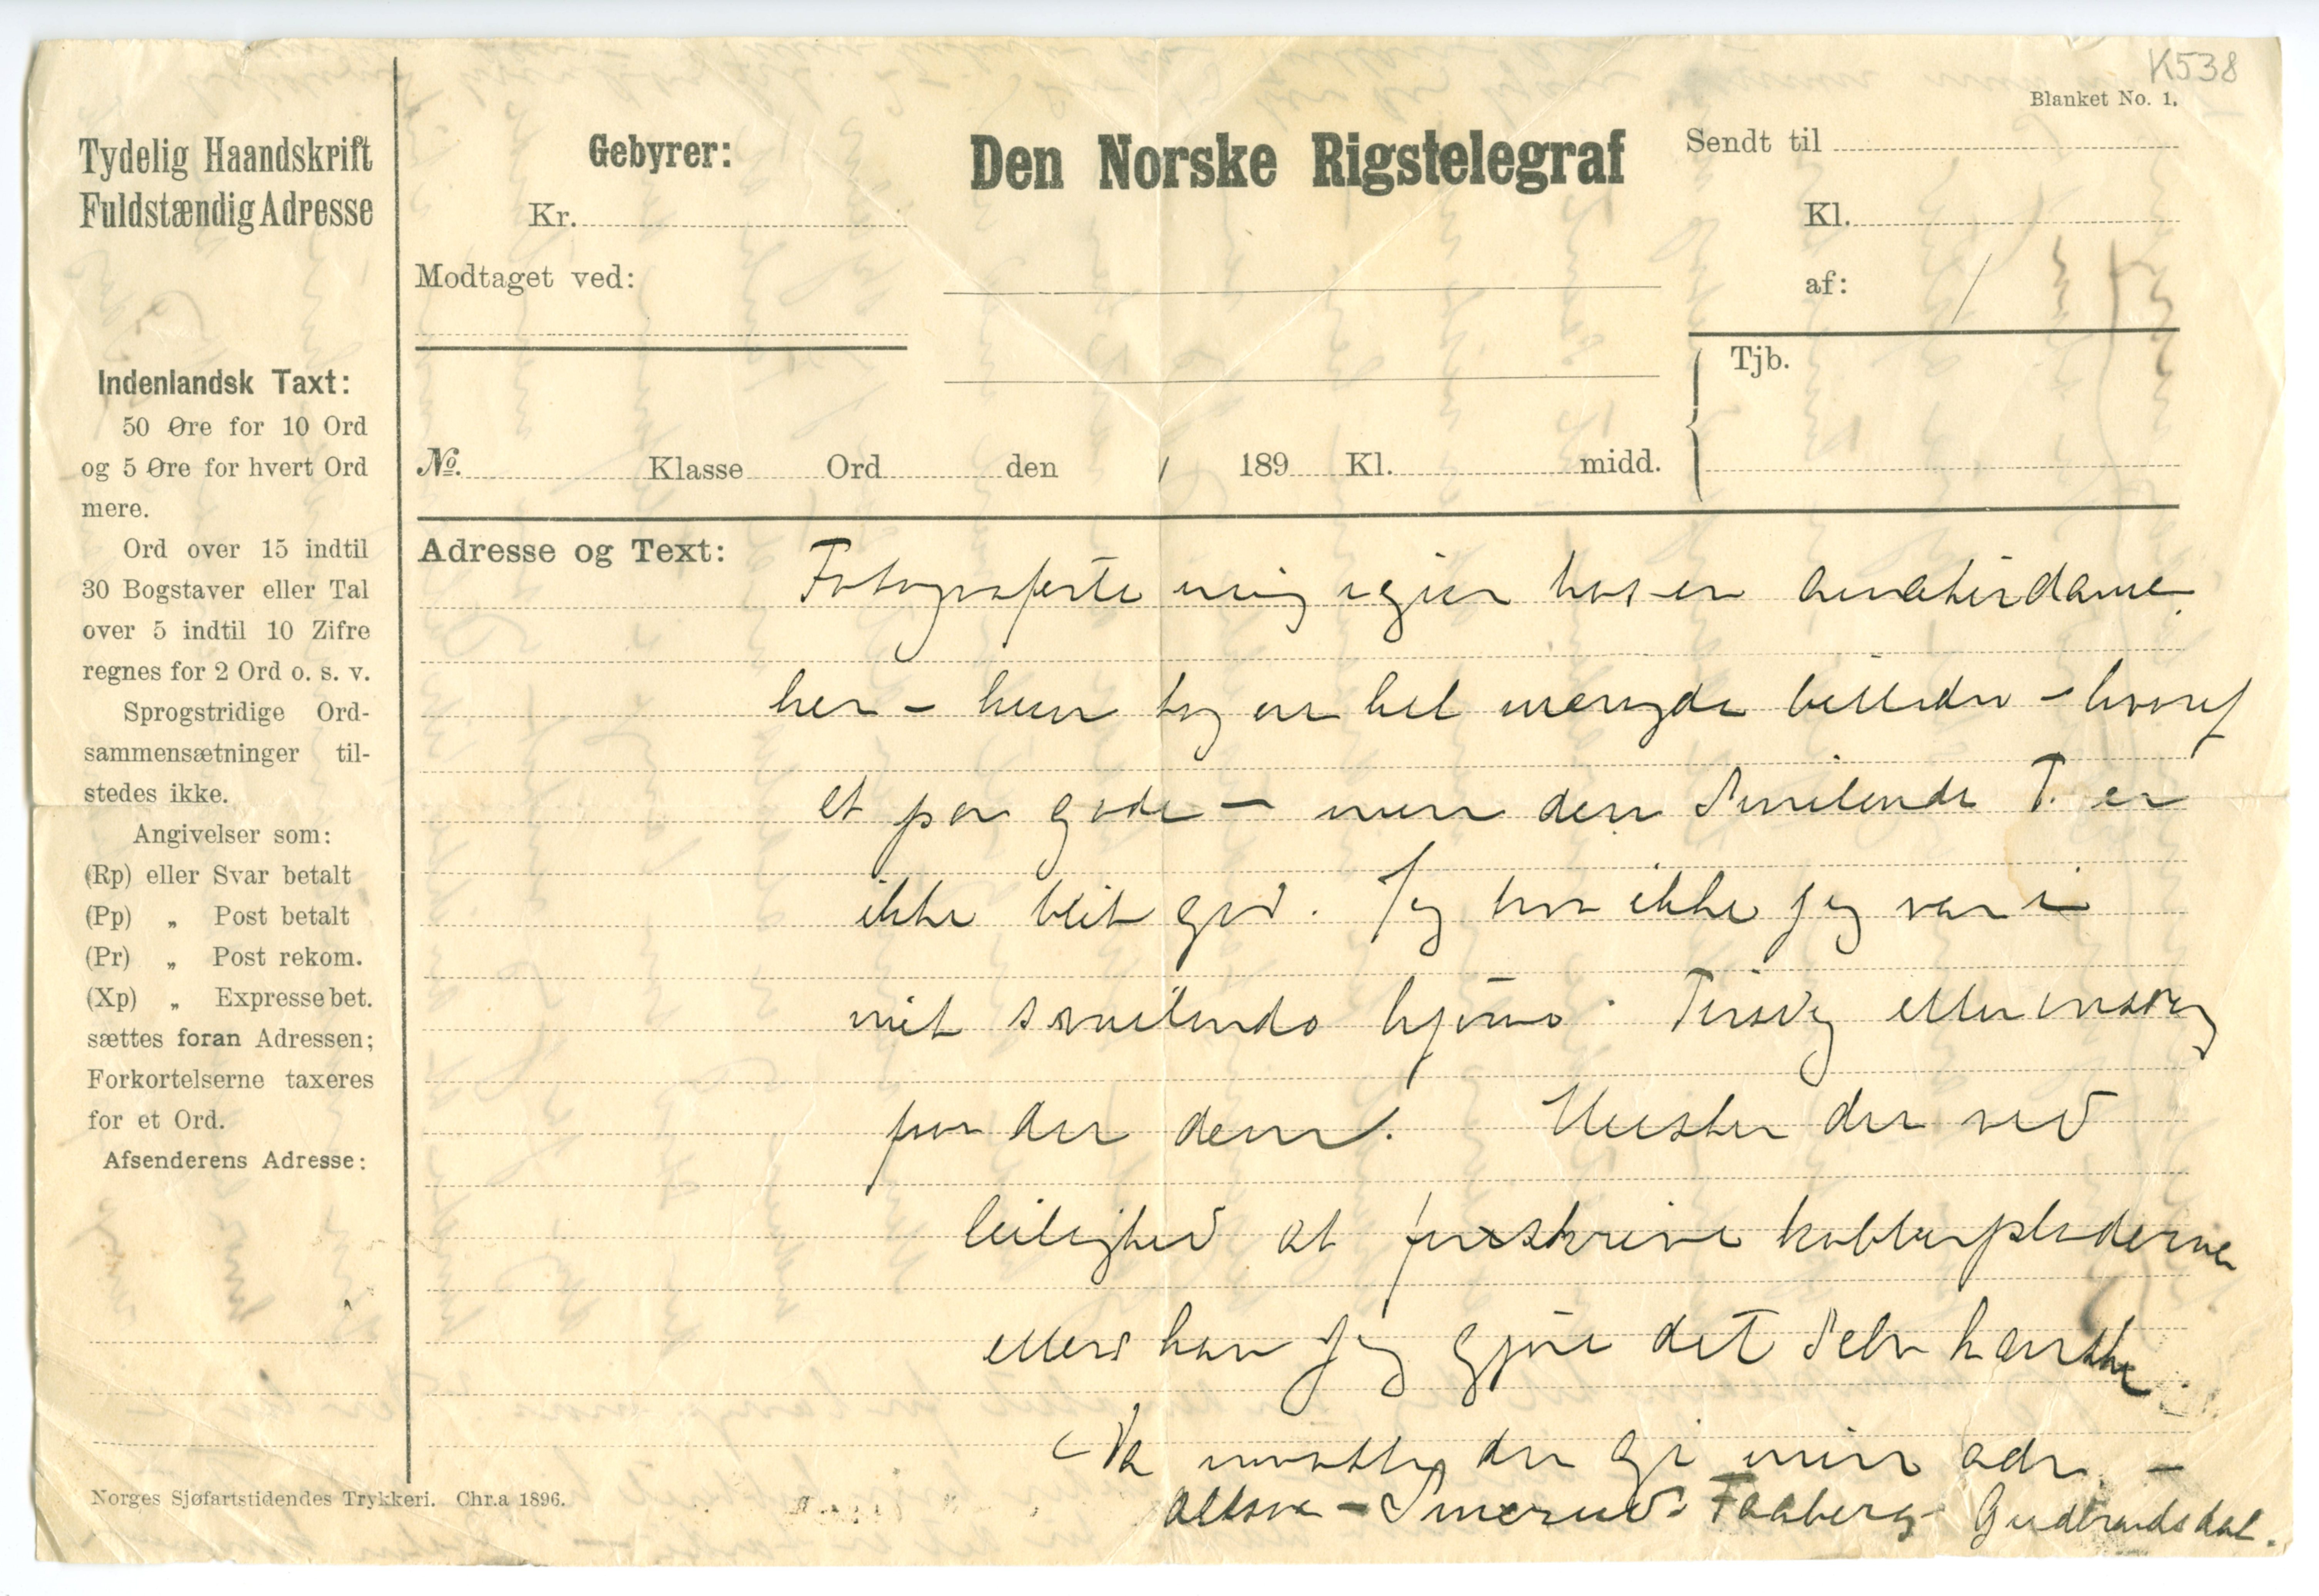 K538
Blanket No. 1.
Tydelig Haandskrift
Fuldstændig Adresse
Indenlandsk Taxt:
50 Øre for 10 Ord
og 5 Øre for hvert Ord
mere.
Ord over 15 indtil
30 Bogstaver eller Tal
over 5 indtil 10 Zifre
regnes for 2 Ord o. s. v.
Sprogstridige Ord-
sammensætninger til-
stedes ikke.
Angivelser som:
(Rp) eller Svar betalt
(Pp) „ Post betalt
(Pr) „ Post rekom.
(Xp) „ Expresse bet.
sættes foran Adressen;
Forkortelserne taxeres
for et Ord.
Afsenderens Adresse:
Norges Sjøfartstidendes Trykkeri. Chr.a 1896.
Gebyrer:
Kr.
Modtaget ved:
Den Norske Rigstelegraf
Sendt til
Kl.
af: /
Tjb.
No. Klasse Ord den / 189 Kl. midd.
Adresse og Text:
Fotograferte mig igjen hos en amatørdame
her – hun tog en hel mængde billeder – hvoraf
et par gode – men den smilende T. er
ikke blit god. Jeg tror ikke jeg var i
mit smilende hjørne. Tirsdag eller onsdag
faar du dem. Husker du ved
leilighed at forskrive kobberpladerne
ellers kan jeg gjøre det selv kanske
Da maatte du gi min adr. –
altsaa – Smerud Faaberg Gudbrandsdal.